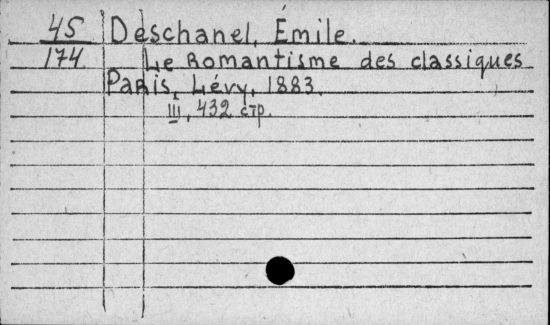 45 Deschanel, Émile.
174 Le Romantisme des classiques
Paris, Lévy, 1883.
III, 432 стр.